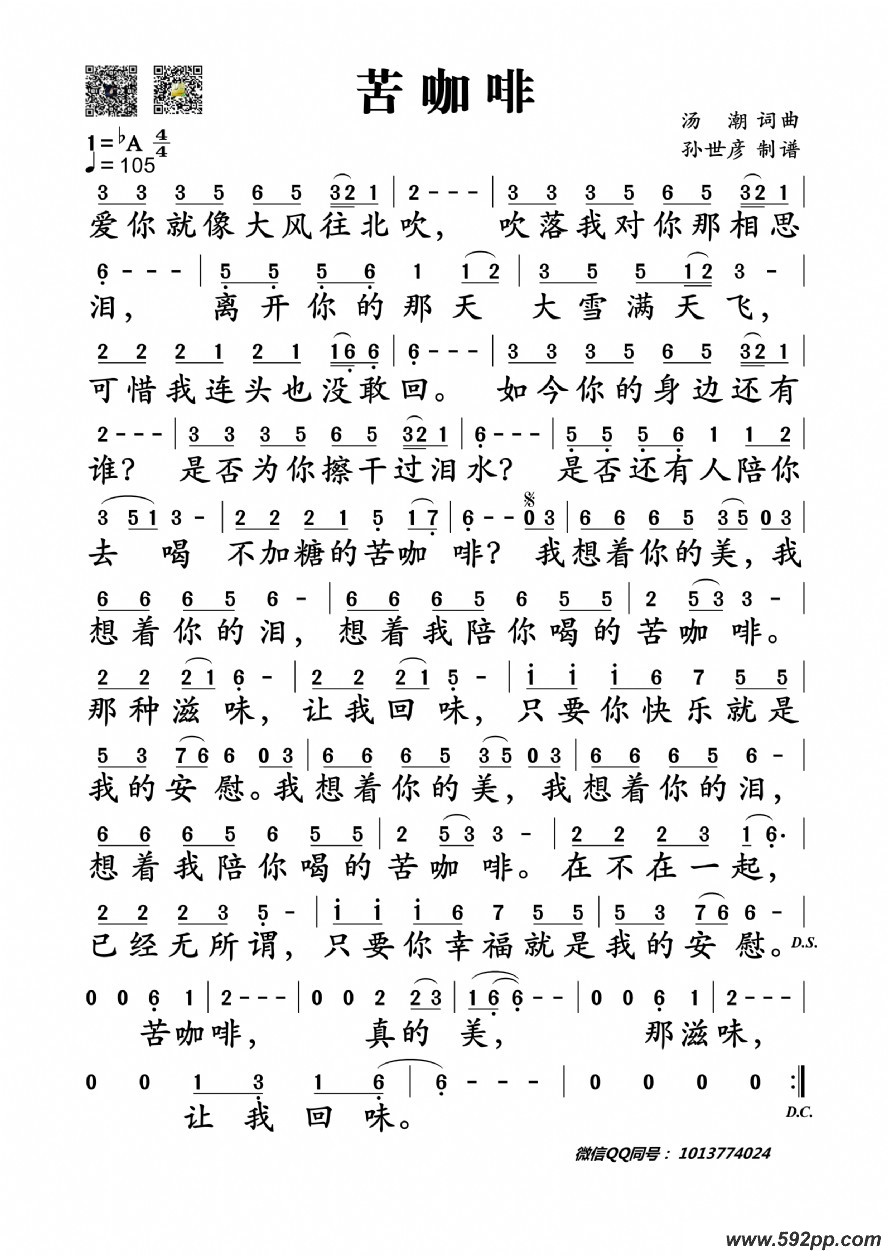 苦咖啡
汤 潮 词曲
1=♭A 4/4
孙世彦 制谱
♩=105
3 3 3 5 6 5 3 2 1 | 2 - - - | 3 3 3 5 6 5 3 2 1 |
爱你就像大风往北吹， 吹落我对你那相思
6̣ - - - | 5̣ 5̣ 5̣ 6̣ 1 1 2 | 3 5 5 1 2 3 - |
泪， 离开你的那天 大雪满天飞，
2 2 2 1 2 2 1 6̣ 6̣ | 6̣ - - - | 3 3 3 5 6 5 3 2 1 |
可惜我连头也没敢回。 如今你的身边还有
2 - - - | 3 3 3 5 6 5 3 2 1 | 6̣ - - - | 5̣ 5̣ 5̣ 6̣ 1 1 2 |
谁？ 是否为你擦干过泪水？ 是否还有人陪你
3 5 1 3 - | 2 2 2 1 5̣ 1 7̣ | 6̣ - - 0 3 | 6 6 6 5 3 5 0 3 |
去 喝 不加糖的苦咖 啡？我想着你的美，我
6 6 6 5 6 - | 6 6 6 5 6 5 5 | 2 5 3 3 - |
想着你的泪，想着我陪你喝的苦咖啡。
2 2 2 1 6̣ - | 2 2 2 1 5̣ - | i i i 6 7 5 5 |
那种滋味，让我回味，只要你快乐就是
5 3 7 6 6 0 3 | 6 6 6 5 3 5 0 3 | 6 6 6 5 6 - |
我的安慰。我想着你的美，我想着你的泪，
6 6 6 5 6 5 5 | 2 5 3 3 - | 2 2 2 3 1 6̣· |
想着我陪你喝的苦咖啡。在不在一起，
2 2 2 3 5̣ - | i i i 6 7 5 5 | 5 3 7 6 6 - |
已经无所谓，只要你幸福就是我的安慰。D.S.
0 0 6̣ 1 | 2 - - - | 0 0 2 2 3 | 1 6̣ 6̣ - - | 0 0 6̣ 1 | 2 - - - |
苦咖啡， 真的美， 那滋味，
0 0 1 3̣ 1 6̣ | 6̣ - - - | 0 0 0 0 :‖
让我回味。 D.C.
微信QQ同号：1013774024
www.592pp.com